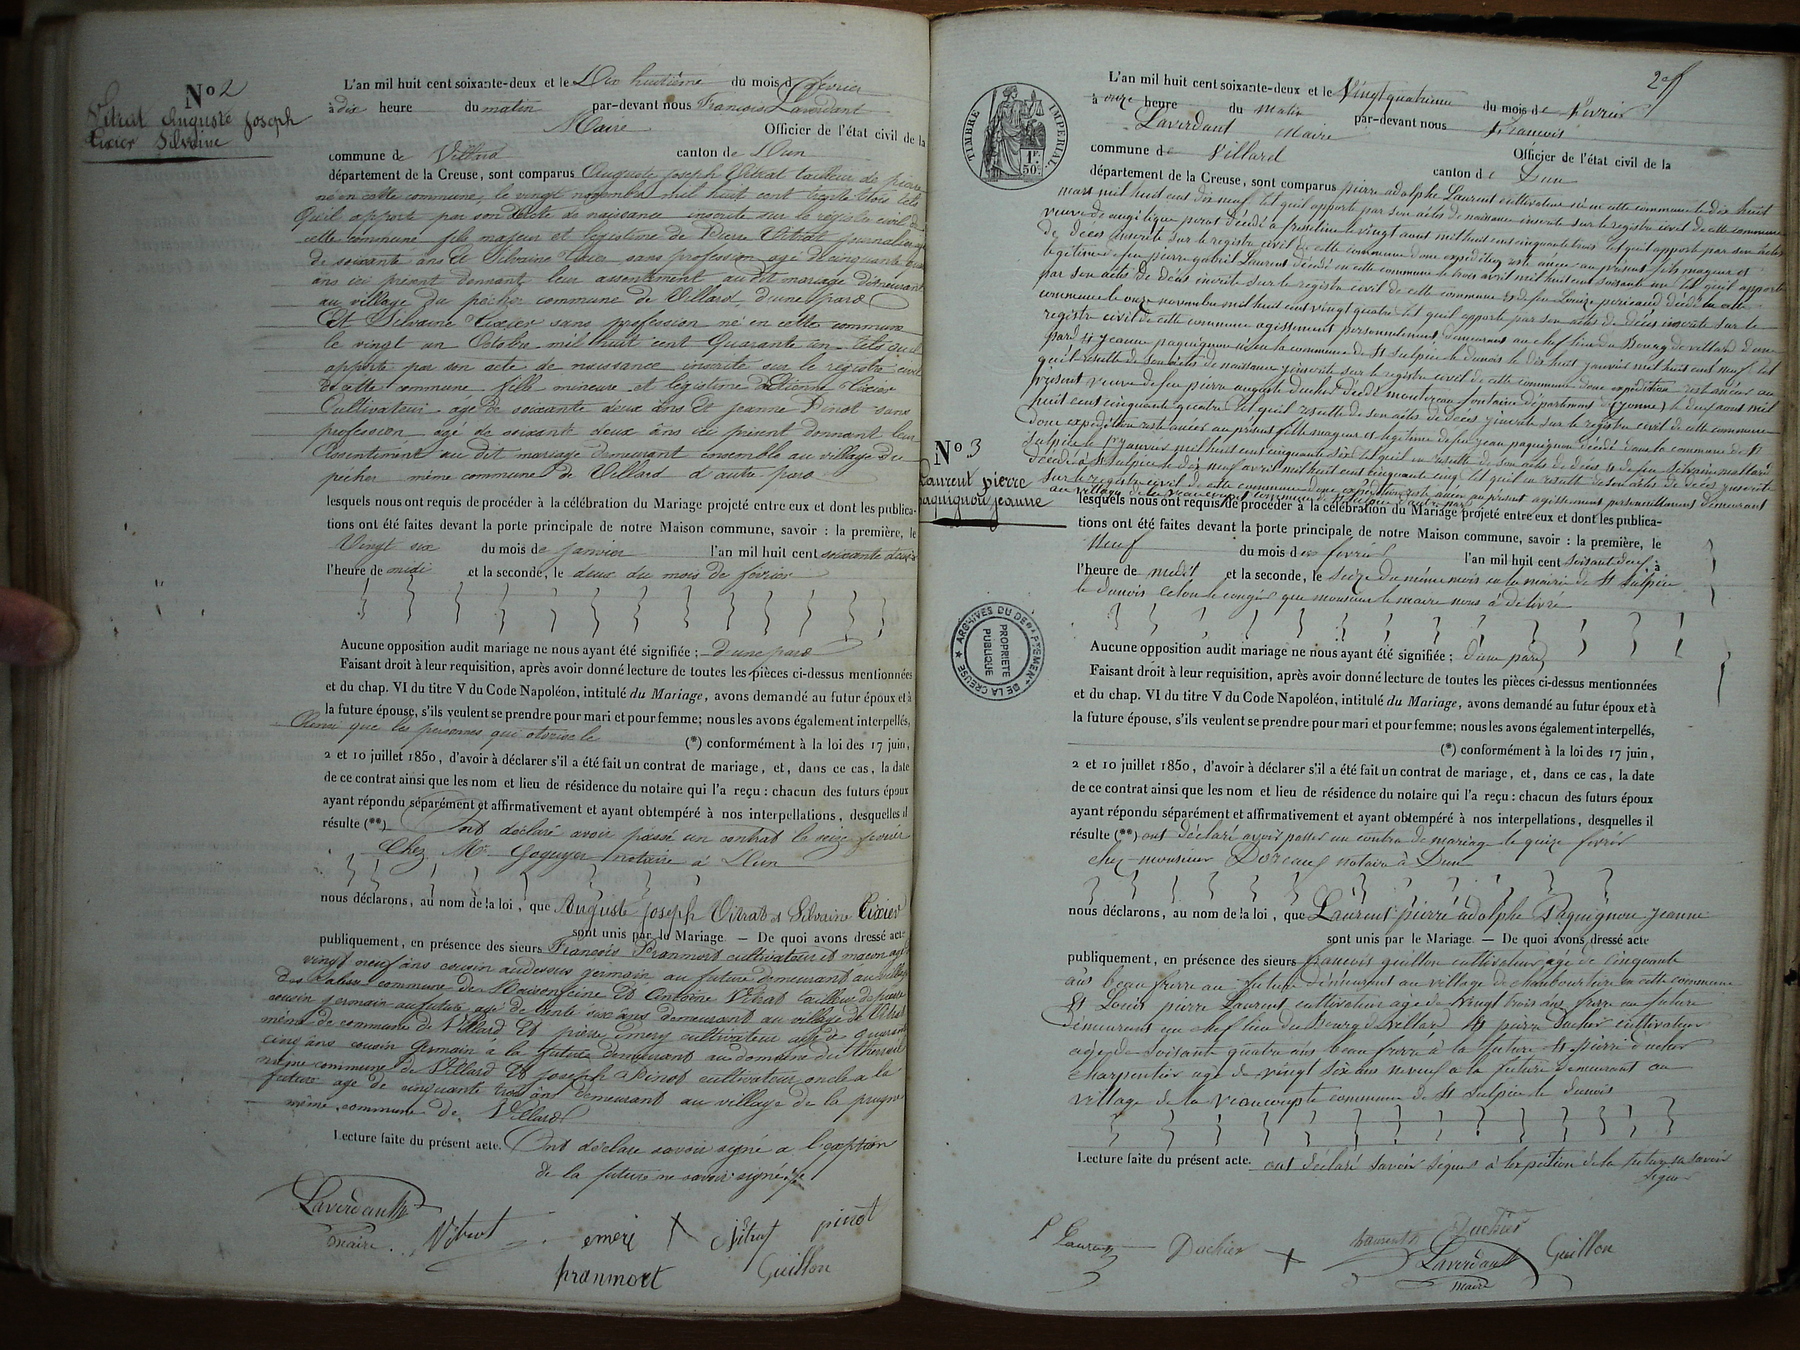 No 2
Vitrat Auguste Joseph
Tixier Silvaine
L'an mil huit cent soixante-deux et le Dix huitième du mois de février
à dix heure du matin par-devant nous François Laverdant
Maire Officier de l'état civil de la
commune de Villard canton de Dun
département de la Creuse, sont comparus Auguste Joseph Vitrat tailleur de pierre
né en cette commune, le vingt novembre mil huit cent trente trois tels
qu'il apporte par son acte de naissance inscrite sur le registre civil de
cette commune fils majeur et légistime de Pierre Vitrat journalier
de soixante ans et Silvaine sans profession agé de cinquante
ans ici présent donnant leur assentiment au dit mariage demeurant
au village du pêcher commune de Villard d'une part
Et Silvaine Tixier sans profession né en cette commune
le vingt un Octobre mil huit cent Quarante un tels qu'il
apporte par son acte de naissance inscrite sur le registre civil
de cette commune fille mineure et légistime d'Etienne Tixier
Cultivateur agé de soixante deux ans Et jeanne Pinot sans
profession agé de soixante deux ans ici présent donnant leur
assentiment au dit mariage demeurant ensemble au village du
pêcher même commune de Villard d'autre part
lesquels nous ont requis de procéder à la célébration du Mariage projeté entre eux et dont les publica-
tions ont été faites devant la porte principale de notre Maison commune, savoir : la première, le
Vingt six du mois de janvier l'an mil huit cent soixante deux à
l'heure de midi et la seconde, le deux du mois de février
Aucune opposition audit mariage ne nous ayant été signifiée ; d'une part
Faisant droit à leur requisition, après avoir donné lecture de toutes les pièces ci-dessus mentionnées
et du chap. VI du titre V du Code Napoléon, intitulé du Mariage, avons demandé au futur époux et à
la future épouse, s'ils veulent se prendre pour mari et pour femme; nous les avons également interpellés,
Ainsi que les personnes qui otorise le (*) conformément à la loi des 17 juin,
2 et 10 juillet 1850, d'avoir à déclarer s'il a été fait un contrat de mariage, et, dans ce cas, la date
de ce contrat ainsi que les nom et lieu de résidence du notaire qui l'a reçu : chacun des futurs époux
ayant répondu séparément et affirmativement et ayant obtempéré à nos interpellations, desquelles il
résulte (**) Ont déclaré avoir passé un contrat le seize février
Chez Mr Goguyer notaire à Dun
nous déclarons, au nom de la loi, que Auguste Joseph Vitrat et Silvaine Tixier
sont unis par le Mariage. — De quoi avons dressé acte
publiquement, en présence des sieurs François Pranmort cultivateur et maçon agé
vingt neuf ans cousin audessus germain au future demeurant au village
des commune de Maisonfeine Et Antoine Vitrat tailleur de pierre
cousin germain au future agé de trente six ans demeurant au village de
même de commune de Villard Et pierre Emery cultivateur agé de quarante
cinq ans cousin Germain à la future demeurant au domaine du
même commune de Villard Et Joseph Pinot cultivateur oncle a la
future age de cinquante trois ans demeurant au village de la prugne
même commune de Villard
Lecture faite du présent acte. Ont déclare savoir signé a l'exeption
de la future ne savoir signé
Laverdant
maire Vitrat emerj X Vitrat pinot
pranmort Guillon
2e f
TIMBRE IMPERIAL
1F.
50c.
L'an mil huit cent soixante-deux et le Vingt quatrieme du mois de Fevrier
à onze heure du matin par-devant nous Francois
Laverdant Maire Officier de l'état civil de la
commune de Villard canton de Dun
département de la Creuse, sont comparus pierre adolphe Laurent cultivateur né en cette commune le dix huit
mars mil huit cent dix neuf tel quil apporte par son actes de naissance inscrite sur le registre civil de cette commune
veuve de angélique perot décédé à fresseline le vingt aout mil huit cent cinquante trois tel quil apporte par son actes
de décés inscrite sur le registre civil de cette commune donc expedition reste ancée au présent fils mageur et
legitime de feu pierre gabriel Laurent décédé en cette commune le trois avril mil huit cent soixante un tel quil apporte
par son actes de décés inscrite sur le registre civil de cette commune et de feu Louize pericaud décédé en cette
commune le onze novembre mil huit cent vingt quatre tel quil apporte par son actes de décés inscrite sur le
registre civil de cette commune agissement personnelement demeurant au chef lieu du Bourg de villard d'une
part et jeanne paquignon né en la commune de St sulpice le dunois le dix huit janvier mil huit cent neuf tel
quil resulte de son actes de naissance inscrite sur le registre civil de cette commune donc expedition rest ancée au
présent veuve de feu pierre auguste ducher décédé montereau fontaine département (yonne) le deux aout mil
huit cent cinquante quatre tel quil resulte de son actes de décés inscrite sur le registre civil de cette commune
donc expedition reste ancée au present fille mageur et legitime de feu jean paquignon décédé dans la commune de St
sulpice le 1er janvier mil huit cent cinquante six tel quil en resulte de son actes de décés et de feu Silvaine mallard
décédé à St sulpice le dix neuf avril mil huit cent cinquante cinq tel quil en resulte de son actes de décés inscrite
sur le registre civil de cette commune donc expedition reste ancée au présent agissement personnellement demeurant
No 3
Laurent pierre
paquignou jeanne
lesquels nous ont requis de procéder à la célébration du Mariage projeté entre eux et dont les publica-
tions ont été faites devant la porte principale de notre Maison commune, savoir : la première, le
Neuf du mois de fevrié l'an mil huit cent soixant deux à
l'heure de medit et la seconde, le seize du même mois en la mairie de St sulpice
le dunois celon le congér que monsieur le maire nous à delivré
ARCHIVES DU DEPARTEMENT DE LA CREUSE
PROPRIETE PUBLIQUE
Aucune opposition audit mariage ne nous ayant été signifiée ; d'une part
Faisant droit à leur requisition, après avoir donné lecture de toutes les pièces ci-dessus mentionnées
et du chap. VI du titre V du Code Napoléon, intitulé du Mariage, avons demandé au futur époux et à
la future épouse, s'ils veulent se prendre pour mari et pour femme; nous les avons également interpellés,
(*) conformément à la loi des 17 juin,
2 et 10 juillet 1850, d'avoir à déclarer s'il a été fait un contrat de mariage, et, dans ce cas, la date
de ce contrat ainsi que les nom et lieu de résidence du notaire qui l'a reçu : chacun des futurs époux
ayant répondu séparément et affirmativement et ayant obtempéré à nos interpellations, desquelles il
résulte (**) ont déclaré avoir passer un contra de mariage le quize fevrié
chez monsieur Doreau notaire à Dun
nous déclarons, au nom de la loi, que Laurent pierre adolphe Paquignou jeanne
sont unis par le Mariage. — De quoi avons dressé acte
publiquement, en présence des sieurs francois guillon cultivateur age de cinquante
ans beau frerre au future demeurant au village de chambourtière en cette commune
Et Louis pierre Laurent cultivateur age de vingt trois ans frere au future
demeurant au chef lieu du Bourg de villard Et pierre Ducher cultivateur
age de soixante quatre ans beau frerre à la future Et pierre ducher
charpentier age de vingt six ans neveuf a la future demeurant au
village de la veaucoupte commune de St sulpice le dunois
Lecture faite du présent acte. ont déclaré savoir signer à lexpétion de la future sa savoir
signer
P Laurent Duchier X Laurent Duchier
Laverdant Guillon
maire